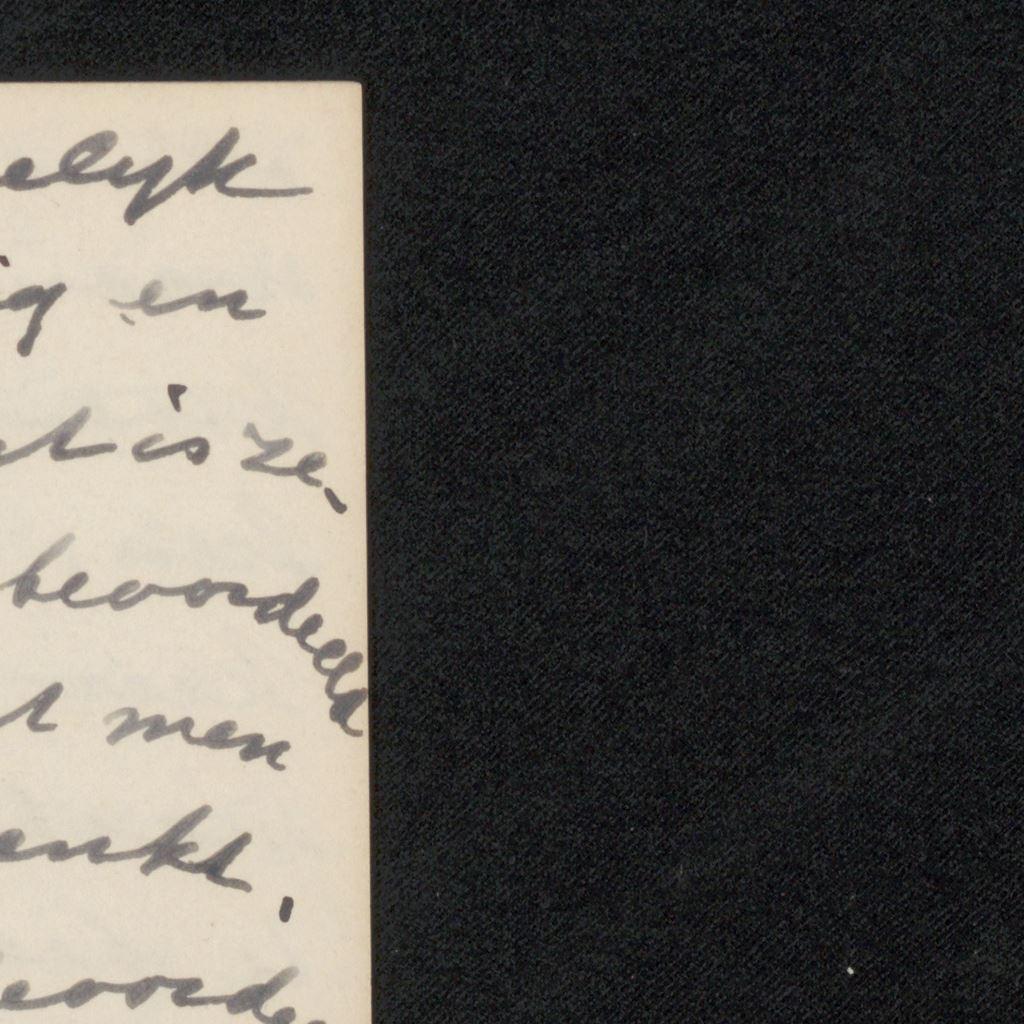 elyk
ig en
t is ze-
beoordeeld
t men
enkt,
eoorde